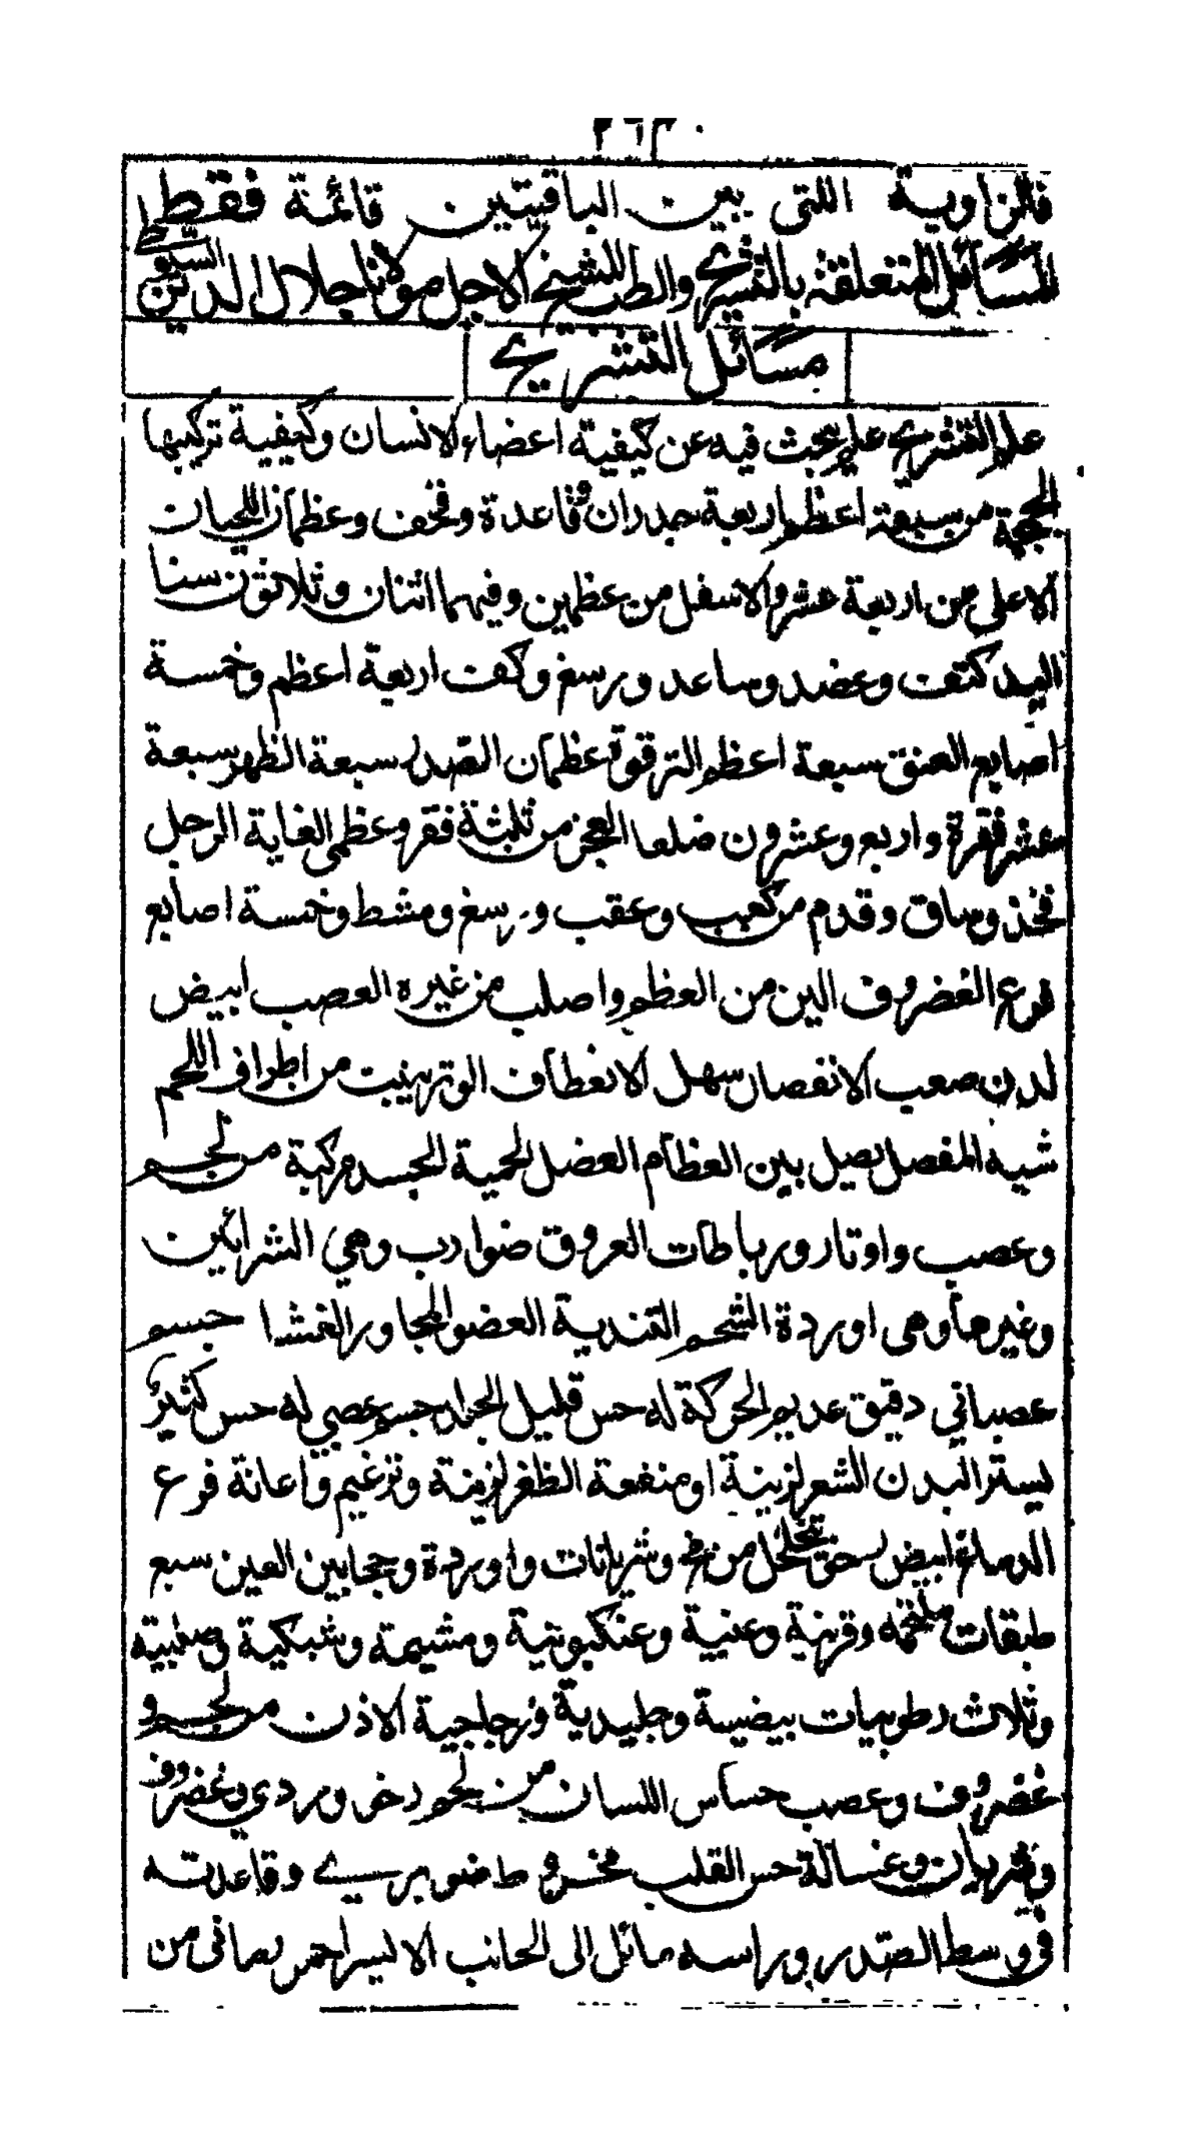 فالزاوية اللتى بين الباقيتين قائمة فقط
المسائل المتعلقة بالتشريح والطب للشيخ الاجل مولانا جلال الدين السيوطي
مسائل التشريح
علم التشريح علم يبحث فيه عن كيفية اعضاء الانسان وكيفية تركيبها
الجمجمة من سبعة اعظم اربعة جدران وقاعدة وقحف وعظمان اللحيات
الاعلى من اربعة عشر والاسفل من عظمين وفيهما اثنان وثلاثون سنا
اليد كتف وعضد وساعد ورسغ وكف اربعة اعظم وخمسة
اصابع العنق سبعة اعظم الترقوة عظمان الصدر سبعة الظهر سبعة
عشر فقرة واربع وعشرون ضلعا العجز من ثلثة فقر وعظمى الغاية الرجل
فخذ وساق وقدم من كعب وعقب ورسغ ومشط وخمسة اصابع
فرع الغضروف الين من العظم واصلب من غيره العصب ابيض
لدن صعب الانفصال سهل الانعطاف الوتر ينبت من اطراف اللحم
شبه المفصل يصل بين العظام العضل لحمية الجسد مركبة من لحم
وعصب واوتار ورباطات العروق ضوارب وهي الشرائين
وغيرها وهى اوردة الشحم لتندية العضو المجاور الغشا جسم
عصباتي دقيق عديم الحركة له حس قليل الجلد جسم عصبي له حس كثير
يستر البدن الشعر لزينة او منفعة الظفر لزينة وتزغيم واعانة فرع
الدماغ ابيض تخلخل من مخ وشريانات واوردة وحجابين العين سبع
طبقات ملتحمه وقرنية وعنبية وعنكبوتية ومشيمة وشبكية وصلبية
وثلاث رطوبيات بيضية وجليدية وزجاجية الاذن من لحم و
غضروف وعصب حساس اللسان من لحم رخو وردي وغضروف
وشريان وغسالة حس القلب مخروط صنوبرسي وقاعدته
فى وسط الصدر وراسه مائل الى الجانب الايسر احمر رمانى من